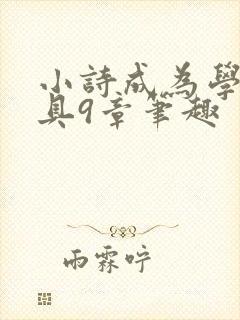 小詩成為學
具9章筆趣
雨霖咛